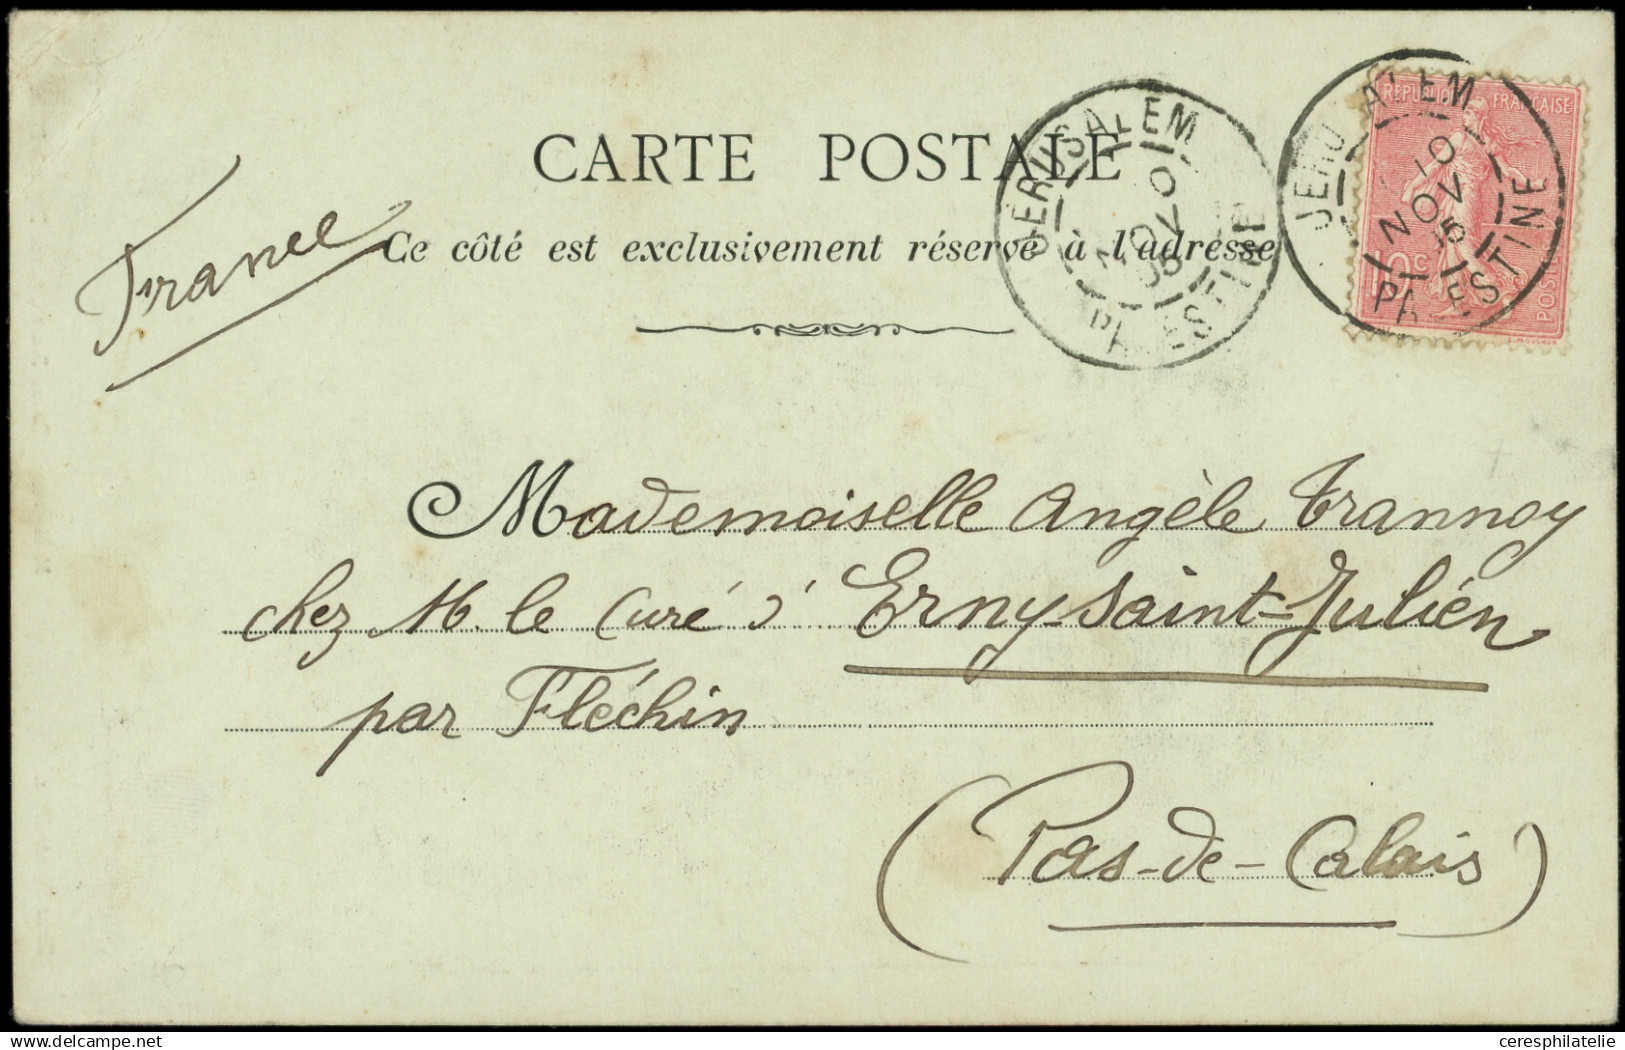 CARTE POSTALE
France
Ce côté est exclusivement réservé à l'adresse
JERUSALEM
10
NOV
05
PALESTINE
REPUBLIQUE FRANÇAISE
10c
POSTES
JERUSALEM
10
NOV
05
PALESTINE
Mademoiselle Angèle Trannoy
chez M. le Curé d' Erny-Saint-Julien
par Fléchin
(Pas-de-Calais)
ceresphilatelie